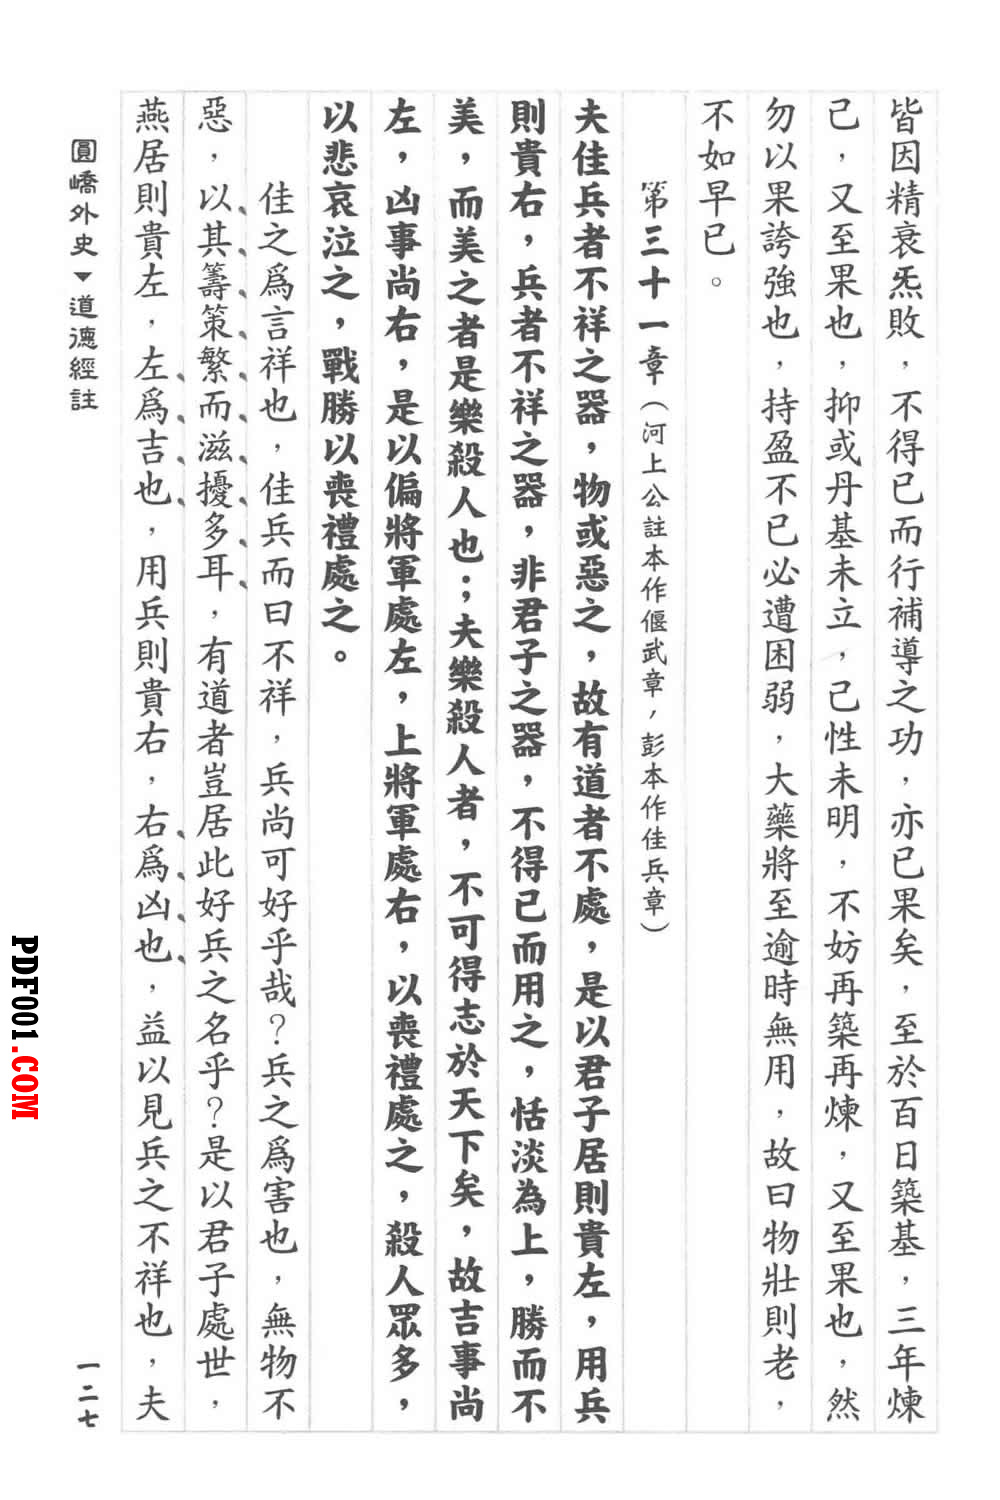 皆因精衰炁敗，不得已而行補導之功，亦已果矣，至於百日築基，三年煉
己，又至果也，抑或丹基未立，己性未明，不妨再築再煉，又至果也，然
勿以果誇強也，持盈不已必遭困弱，大藥將至逾時無用，故曰物壯則老，
不如早已。
第三十一章（河上公註本作偃武章，彭本作佳兵章）
夫佳兵者不祥之器，物或惡之，故有道者不處，是以君子居則貴左，用兵
則貴右，兵者不祥之器，非君子之器，不得已而用之，恬淡為上，勝而不
美，而美之者是樂殺人也；夫樂殺人者，不可得志於天下矣，故吉事尚
左，凶事尚右，是以偏將軍處左，上將軍處右，以喪禮處之，殺人眾多，
以悲哀泣之，戰勝以喪禮處之。
佳之爲言祥也，佳兵而曰不祥，兵尚可好乎哉？兵之爲害也，無物不
惡，以其籌策繁而滋擾多耳，有道者豈居此好兵之名乎？是以君子處世，
燕居則貴左，左爲吉也，用兵則貴右，右爲凶也，益以見兵之不祥也，夫
圓嶠外史▼道德經註
一二七
PDF001.COM